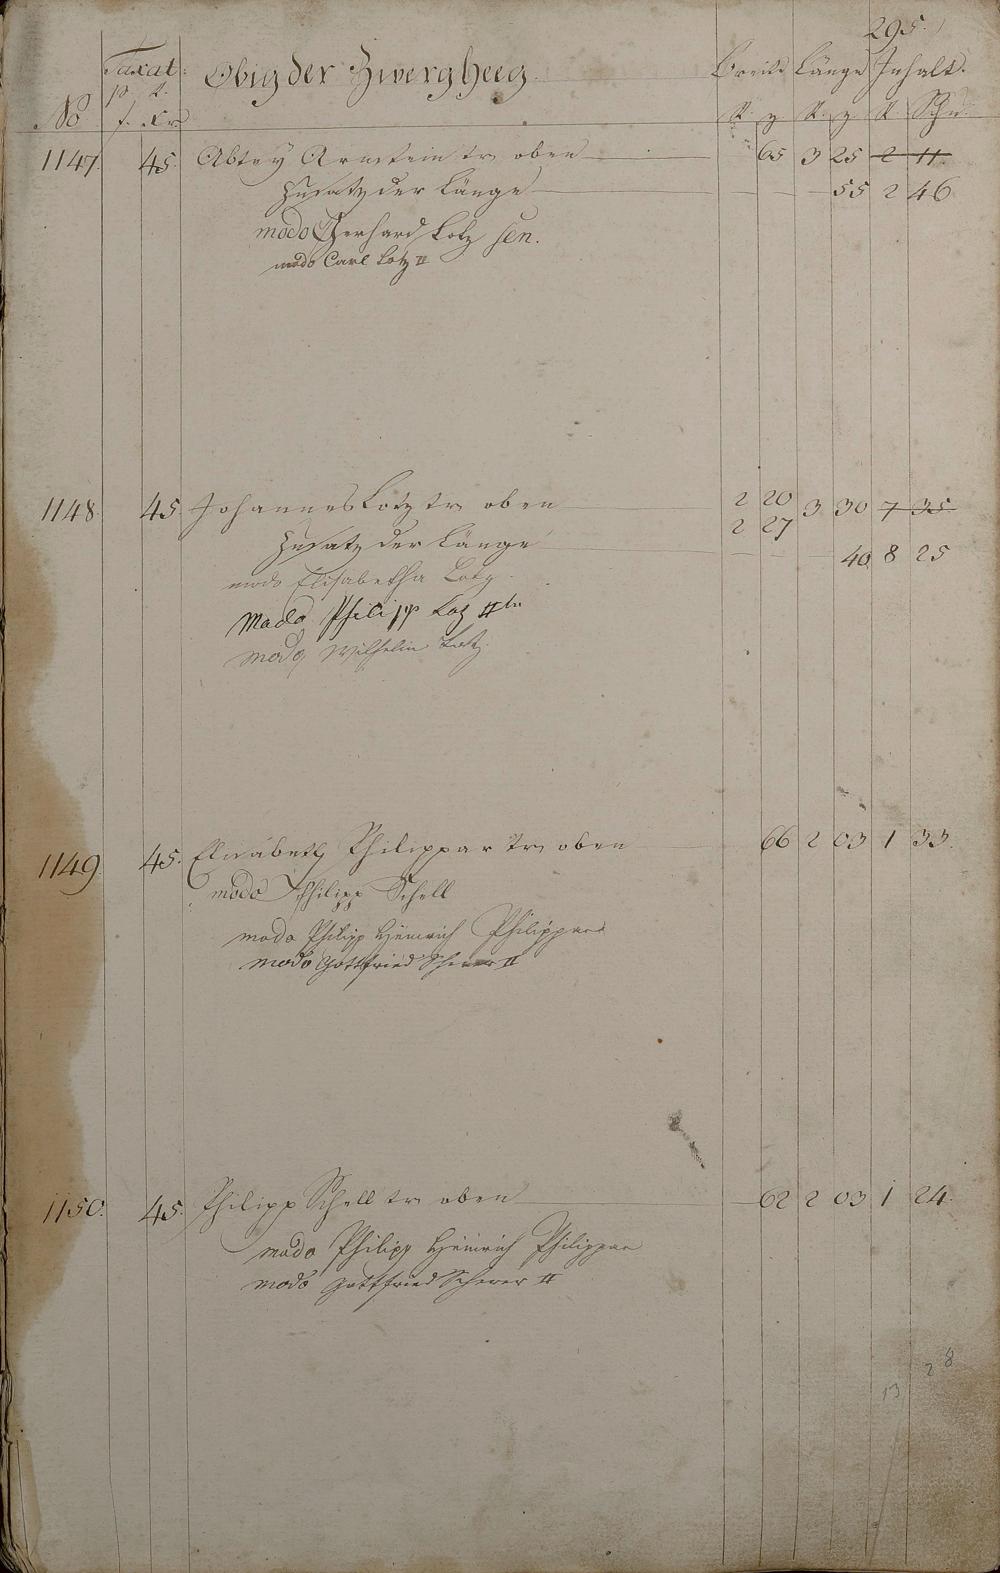 295.
Taxat: Obig der Zwergheeg Breite Länge Inhalt.
No f. Kr. R. R. R. Schu.
1147. 45. Abtey Arnstein tr oben 65 3 25 2 11.
Zusatz der Länge 55 2 46
modo Gerhard Lotz sen.
modo Carl Lotz II
1148 45. Johannes Lotz tr oben 2 20 3 30 7 35
2 27
Zusatz der Länge 40 8 25
modo Elisabetha Lotz.
Modo Philipp Loz IIte
modo Wilhelm Lotz.
1149. 45. Elisabeth Philippar tr oben 66 2 03 1 33.
modo Philipp Schell
modo Philipp Heinrich Philippar
modo Gottfried Scherer II
1150. 45. Philipp Schell tr oben 62 2 03 1 24.
modo Philipp Heinrich Philippar
modo Gottfried Scherer II
2 8
13